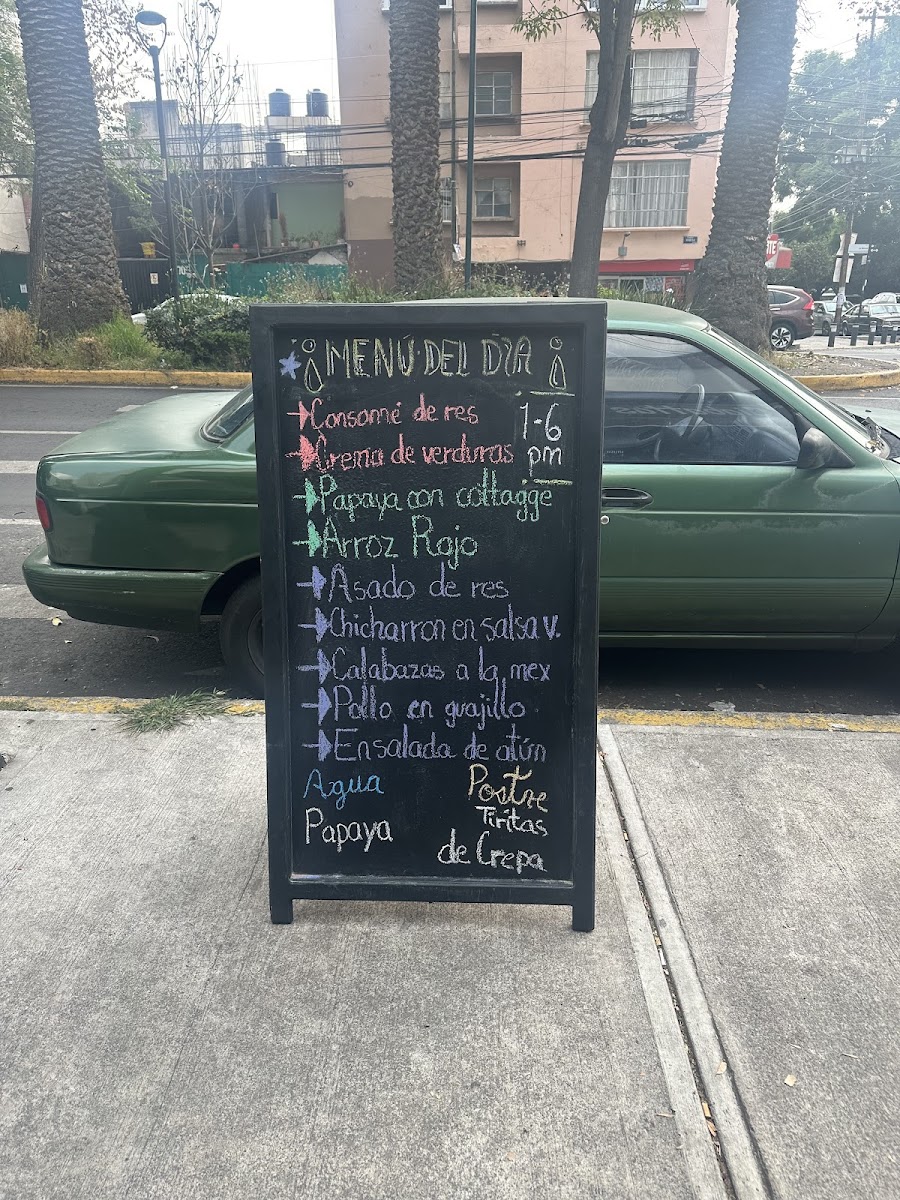 ¡MENÚ DEL DÍA!
1-6
pm
Consomé de res
Crema de verduras
Papaya con cottagge
Arroz Rojo
Asado de res
Chicharron en salsa v.
Calabazas a la mex
Pollo en guajillo
Ensalada de atún
Agua
Papaya
Postre
Tiritas
de Crepa